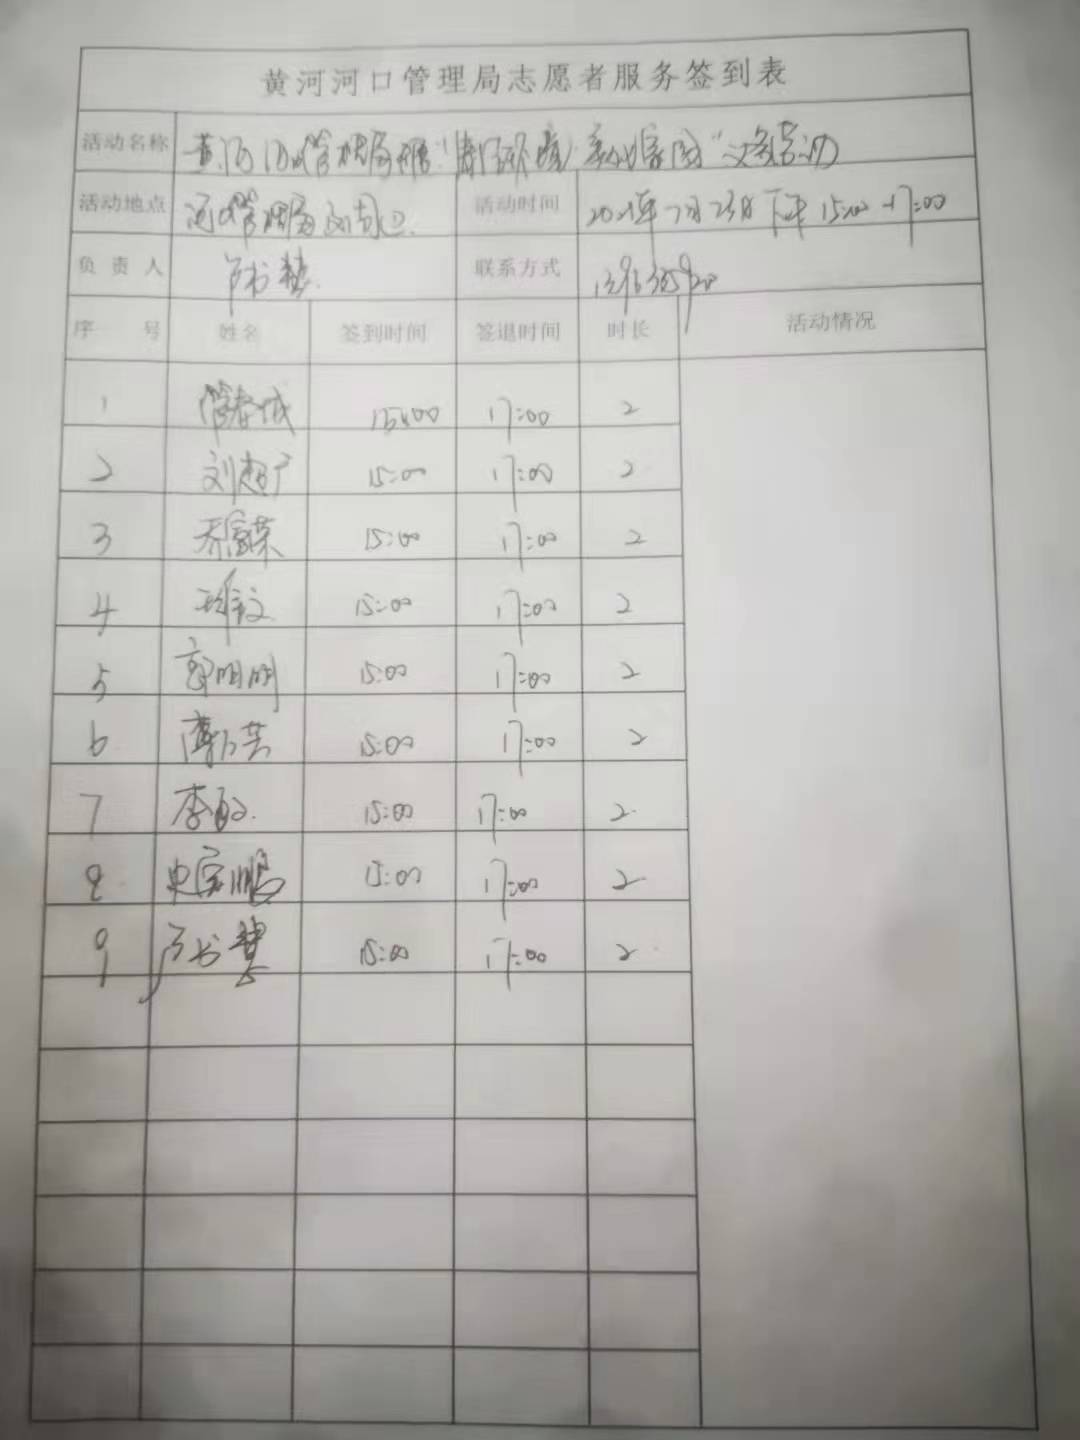 黄河河口管理局志愿者服务签到表
活动名称 黄河河口管理局开展"清洁环境 美化家园"义务劳动
活动地点 河口管理局 活动时间 2021年7月23日下午15:00-17:00
负责人 卢书慧 联系方式
序号 姓名 签到时间 签退时间 时长 活动情况
1 管春城 15:00 17:00 2
2 刘超广 15:00 17:00 2
3 乔富荣 15:00 17:00 2
4 15:00 17:00 2
5 郭明明 15:00 17:00 2
6 15:00 17:00 2
7 李敏 15:00 17:00 2
8 史宗鹏 15:00 17:00 2
9 卢书慧 15:00 17:00 2